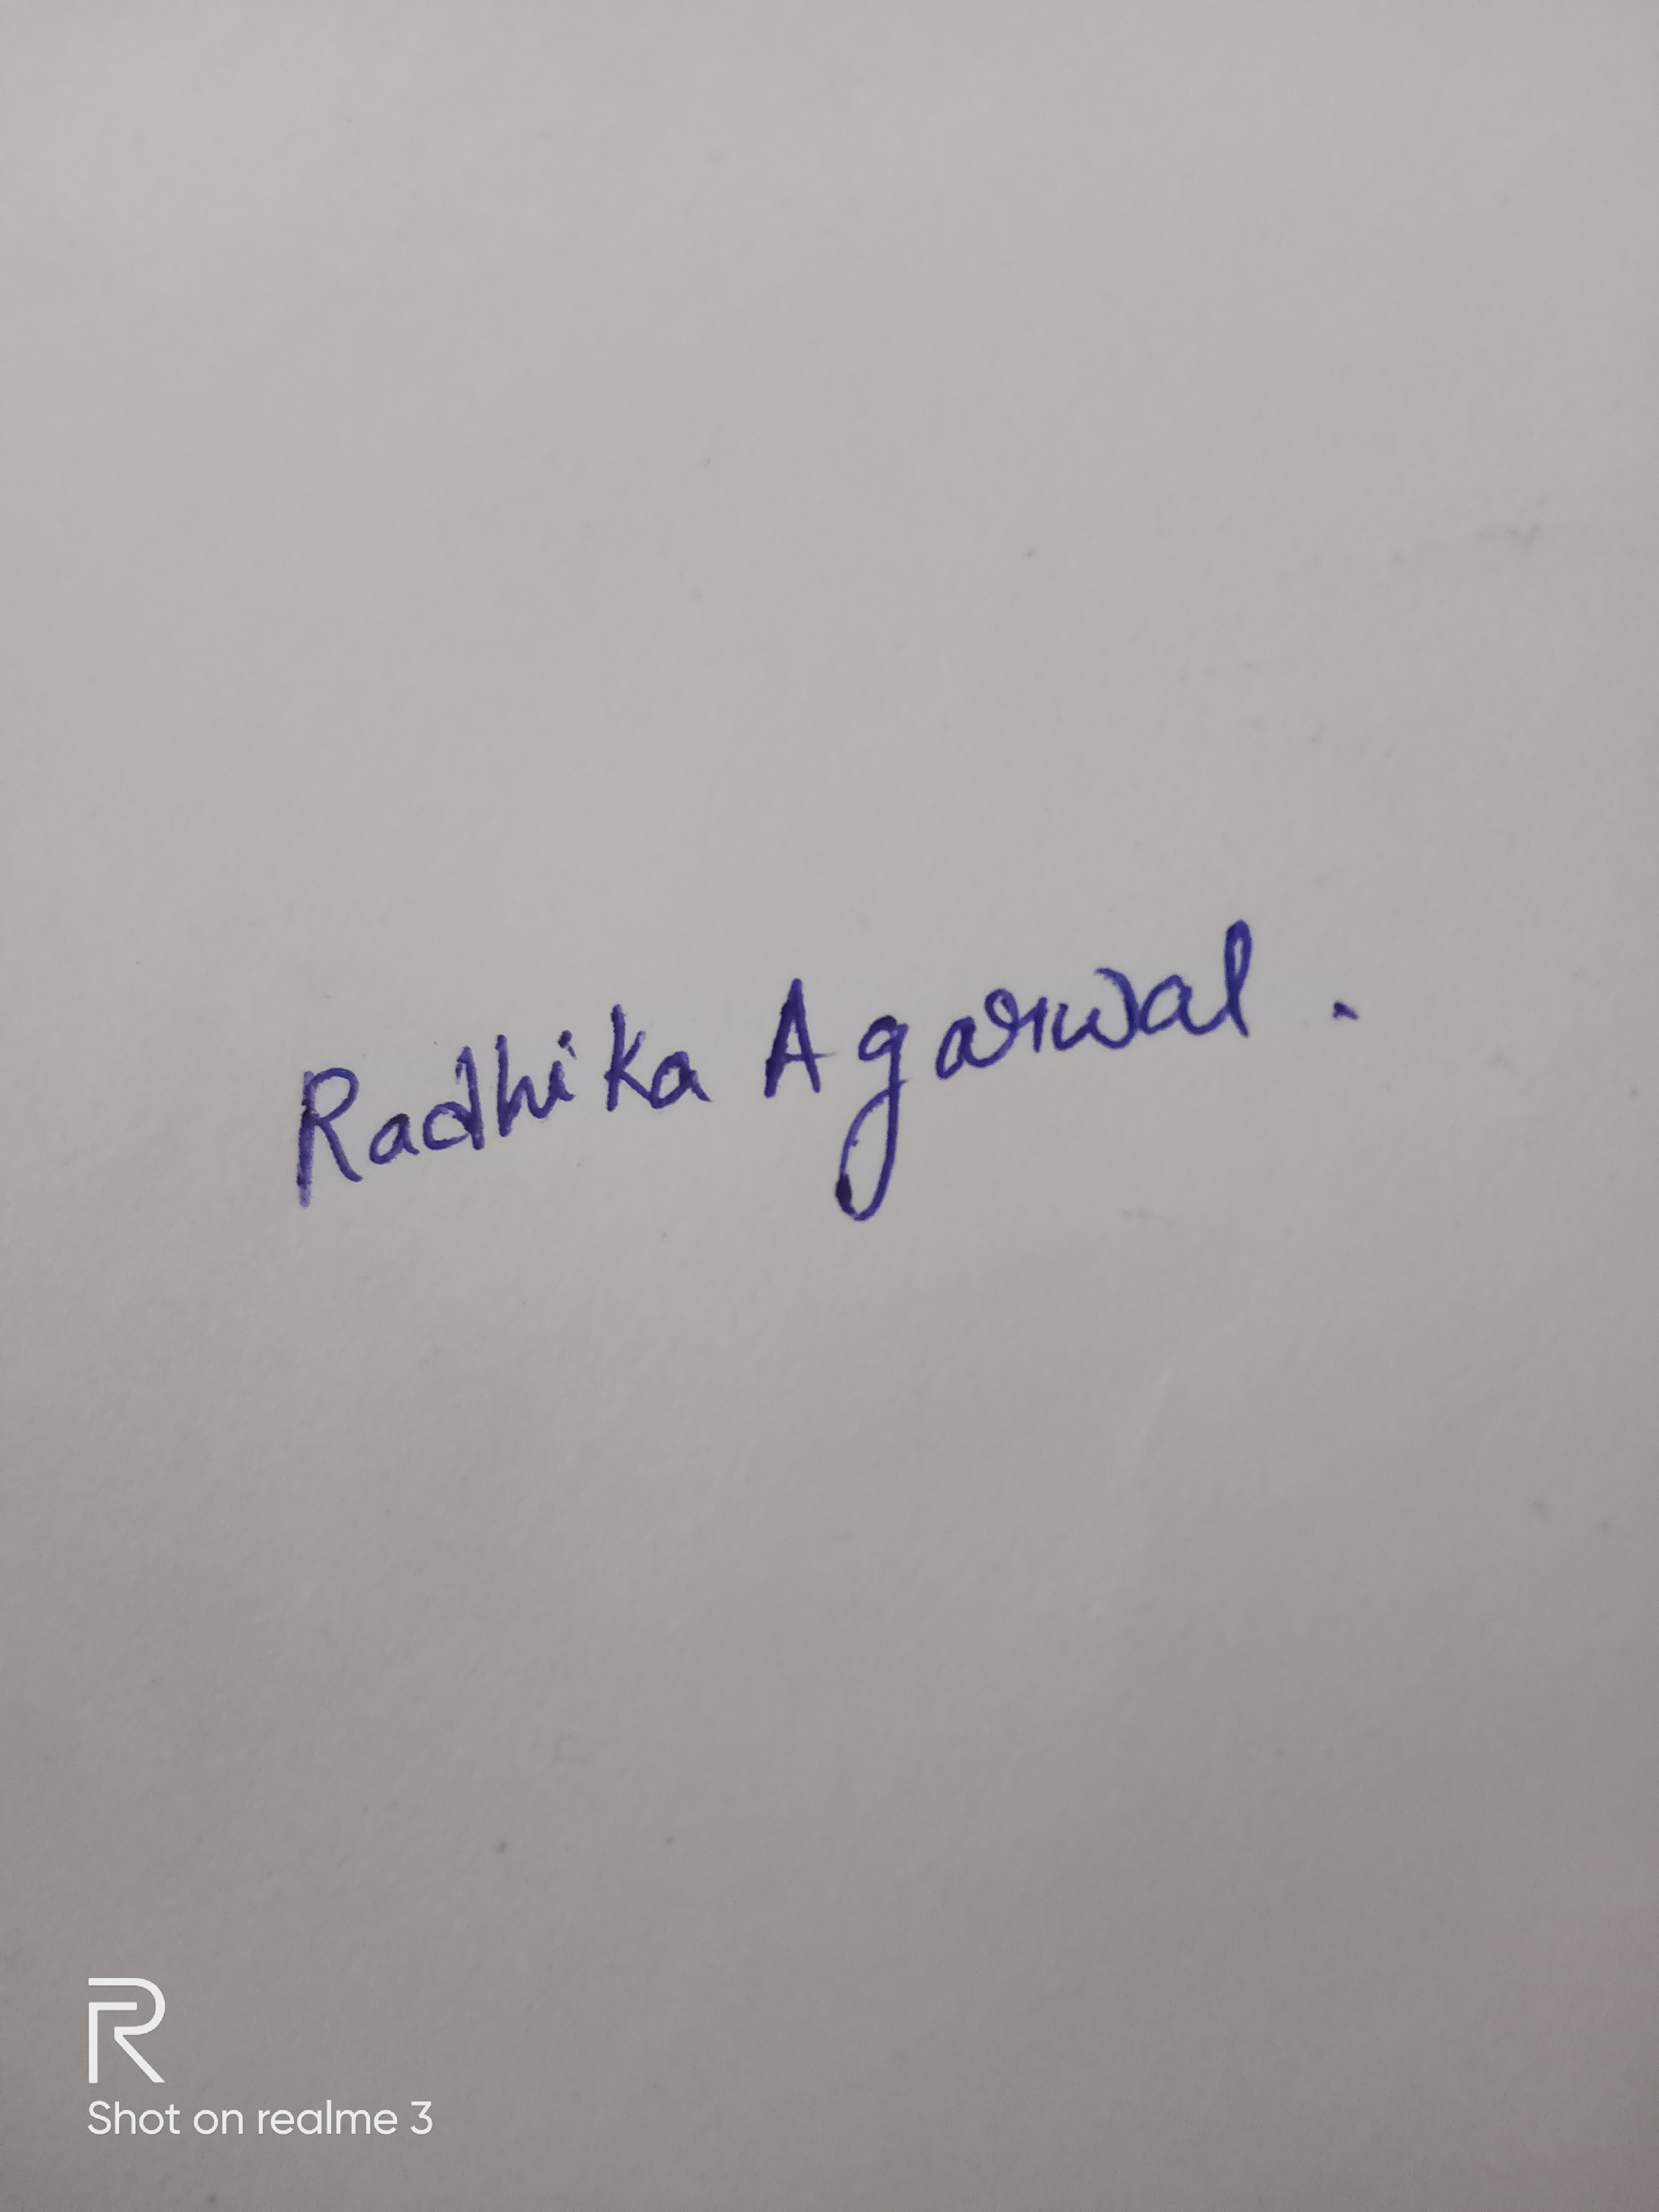 Radhika Agarwal.
R
Shot on realme 3